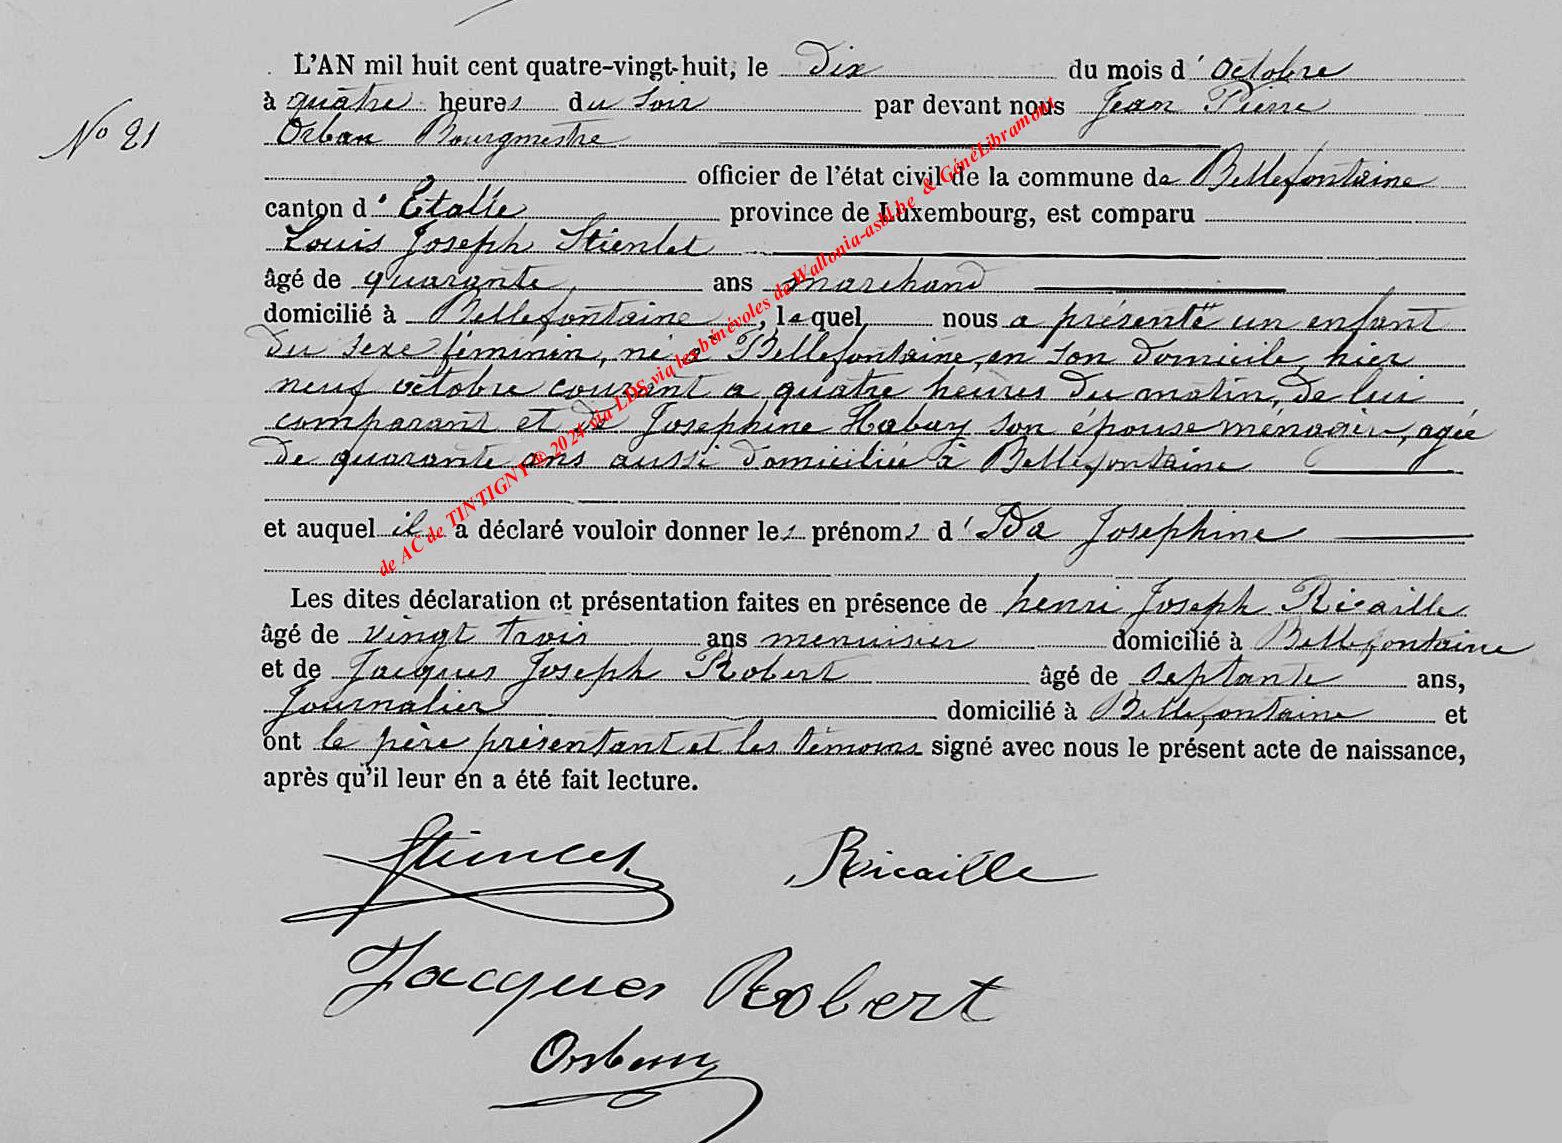 L'AN mil huit cent quatre-vingt-huit, le Dix du mois d' octobre
à quatre heures du soir par devant nous Jean Pierre
N° 21
Orban Bourgmestre
officier de l'état civil de la commune de Bellefontaine
canton d' Etalle province de Luxembourg, est comparu
Louis Joseph Stienlet
âgé de quarante ans marchand
domicilié à Bellefontaine, lequel nous a présenté un enfant
du sexe féminin, né à Bellefontaine, en son domicile, hier
neuf octobre courant a quatre heures du matin, de lui
comparant et de Josephine Habay son épouse ménagère, agée
de quarante ans aussi domiciliée à Bellefontaine
et auquel il a déclaré vouloir donner les prénoms d' Ida Josephine
Les dites déclaration et présentation faites en présence de henri Joseph Ricaille
âgé de vingt trois ans menuisier domicilié à Bellefontaine
et de Jacques Joseph Robert âgé de septante ans,
Journalier domicilié à Bellefontaine et
ont le père présentant et les témoins signé avec nous le présent acte de naissance,
après qu'il leur en a été fait lecture.
Stienlet Ricaille
Jacques Robert
Orban
de AC de TINTIGNY ® 2024 via LDS via les bénévoles de Wallonia-asbl.be & GénéLibramont